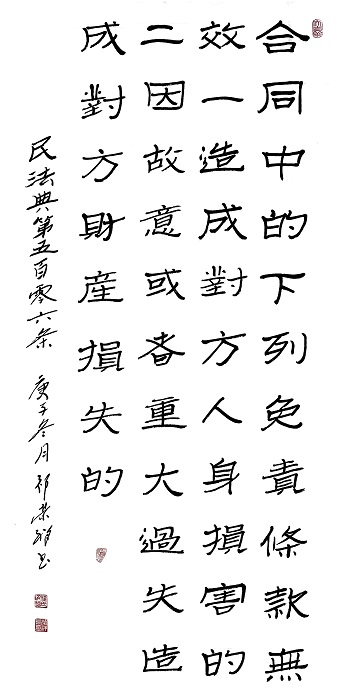 合同中的下列免責條款無
效一造成對方人身損害的
二因故意或者重大過失造
成對方財産損失的
民法典第五百零六条 庚子冬月 祁荣书